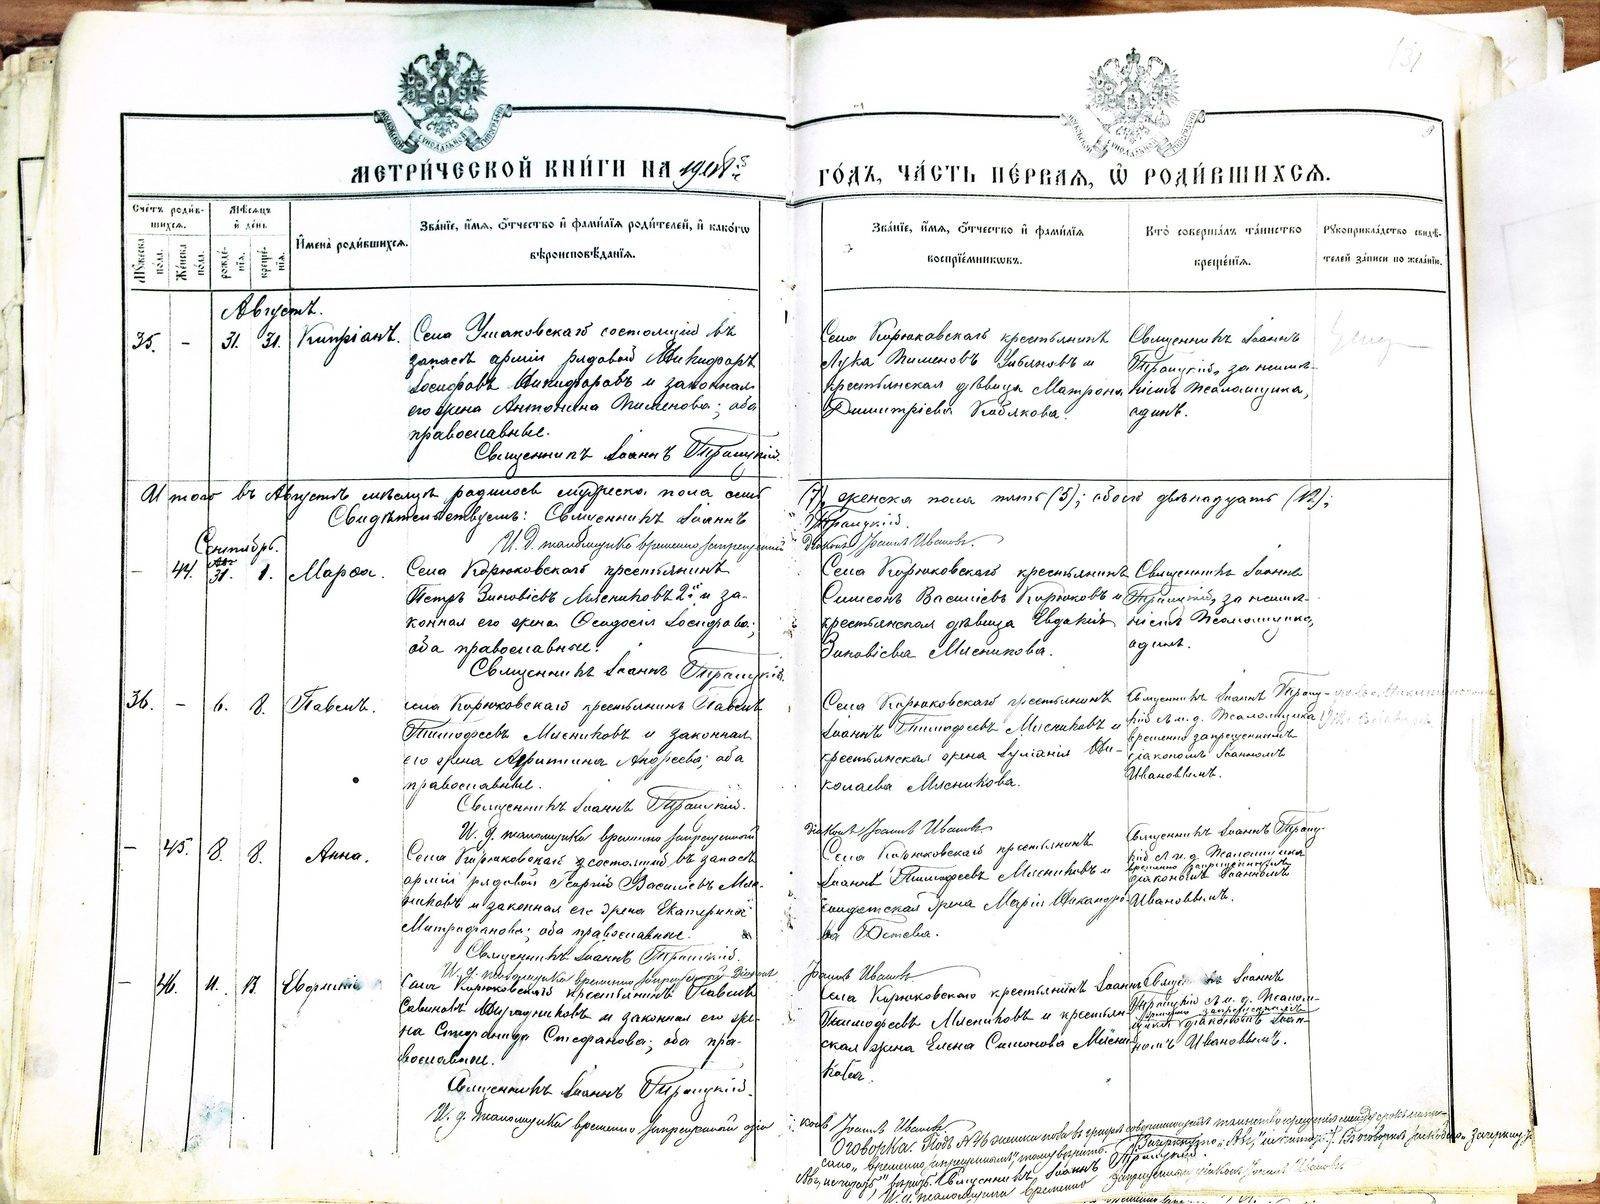 131
МЕТРИ́ЧЕСКОЙ КНИ́ГИ НА 1908й ГО́ДЪ, ЧА́СТЬ ПЕ́РВАЯ, Ѿ РОДИ́ВШИХСЯ.
Сче́тъ роди́вшихся.
Мѣ́сяцъ и҆ де́нь
Мужеска по́ла.
Же́нска по́ла.
рожде́нїя.
креще́нїя.
И҆мена̀ роди́вшихся.
Зва́нїе, и҆́мя, ѻ҆́тчество и҆ фами́лїя роди́телей, и҆ како́гѡ вѣроисповѣ́данїя.
Зва́нїе, и҆́мя, ѻ҆́тчество и҆ фами́лїя воспрїе́мникѡвъ.
Кто̀ соверша́лъ та́инство креще́нїя.
Рукоприкла́дство свидѣ́телей за́писи по жела́нїю.
Августъ.
35. - 31. 31. Кипріанъ.
Села Ушаковскаго состоящій въ
запасѣ арміи рядовой Никифоръ
Іосифовъ Никифоровъ и законная
его жена Антонина Пименова; оба
православные.
Священникъ Іоаннъ Троицкій.
Села Корюковскаго крестьянинъ
Лука Пименовъ и
крестьянская дѣвица Матрона
Димитріева Кобякова.
Священникъ Іоаннъ
Троицкій, за неимѣ-
ніемъ псаломщика,
одинъ.
Итого въ Августѣ мѣсяцѣ родилось мужеска пола семь (7), женска пола пять (5); обоего двѣнадцать (12);
Свидѣтельствуемъ: Священникъ Іоаннъ Троицкій.
И. д. псаломщика временно запрещенный діаконъ Іоаннъ Ивановъ.
Сентябрь.
- 44. 31. 1. Марѳа.
Села Корюковскаго крестьянинъ
Петръ Зиновіевъ Мясниковъ 2й и за-
конная его жена Ѳеодосія Іосифова;
оба православные.
Священникъ Іоаннъ Троицкій.
Села Корюковскаго крестьянинъ
Симеонъ Василіевъ Корюковъ и
крестьянская дѣвица Евдокія
Зиновіева Мясникова.
Священникъ Іоаннъ
Троицкій, за неимѣ-
ніемъ псаломщика,
одинъ.
36. - 6. 8. Павелъ.
села Корюковскаго крестьянинъ Павелъ
Тимофеевъ Мясниковъ и законная
его жена Андреева; оба
православные.
Священникъ Іоаннъ Троицкій.
И. д. псаломщика временно запрещенный діаконъ Іоаннъ Ивановъ.
Села Корюковскаго крестьянинъ
Іоаннъ Тимофеевъ Мясниковъ и
крестьянская жена Іуліанія Ни-
колаева Мясникова.
Священникъ Іоаннъ Троиц-
кій съ и. д. псаломщика
временно запрещеннымъ
діакономъ Іоанномъ
Ивановымъ.
- 45. 8. 8. Анна.
Села Корюковскаго состоящій въ запасѣ
арміи рядовой Георгій Василіевъ Мяс-
никовъ и законная его жена Екатерина
Митрофанова; оба православные.
Священникъ Іоаннъ Троицкій.
И. д. псаломщика временно запрещенный діаконъ Іоаннъ Ивановъ
Села Корюковскаго крестьянинъ
Іоаннъ Тимофеевъ Мясниковъ и
жена Марія Никандро-
ва
Священникъ Іоаннъ Троиц-
кій съ и. д. псаломщика
временно запрещеннымъ
діакономъ Іоанномъ
Ивановымъ.
- 46. 11. 13.
Села Корюковскаго крестьянинъ Павелъ
Савиновъ и законная его же-
на Стефанида Стефанова; оба пра-
вославные.
Священникъ Іоаннъ Троицкій.
И. д. псаломщика временно запрещенный діаконъ Іоаннъ Ивановъ.
Села Корюковскаго крестьянинъ Іоаннъ
Тимофеевъ Мясниковъ и крестьян-
ская жена Елена Симонова Мясни-
кова.
Іоаннъ
Троицкій съ и. д. псалом-
щика временно запрещеннымъ
діакономъ Іоан-
номъ Ивановымъ.
Оговорка.
Священникъ Іоаннъ Троицкій.
И. д. псаломщика временно запрещенный діаконъ Іоаннъ Ивановъ.